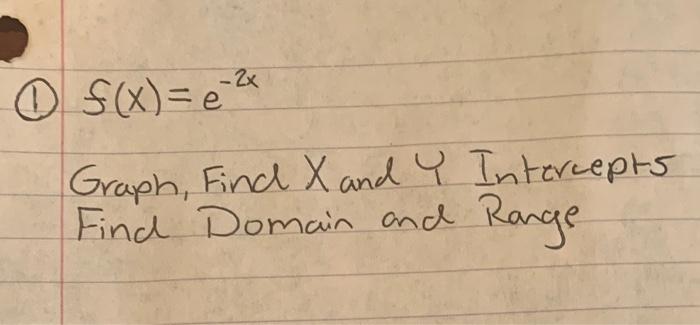 ① f(x) = e^-2x
Graph, Find X and Y Intercepts
Find Domain and Range